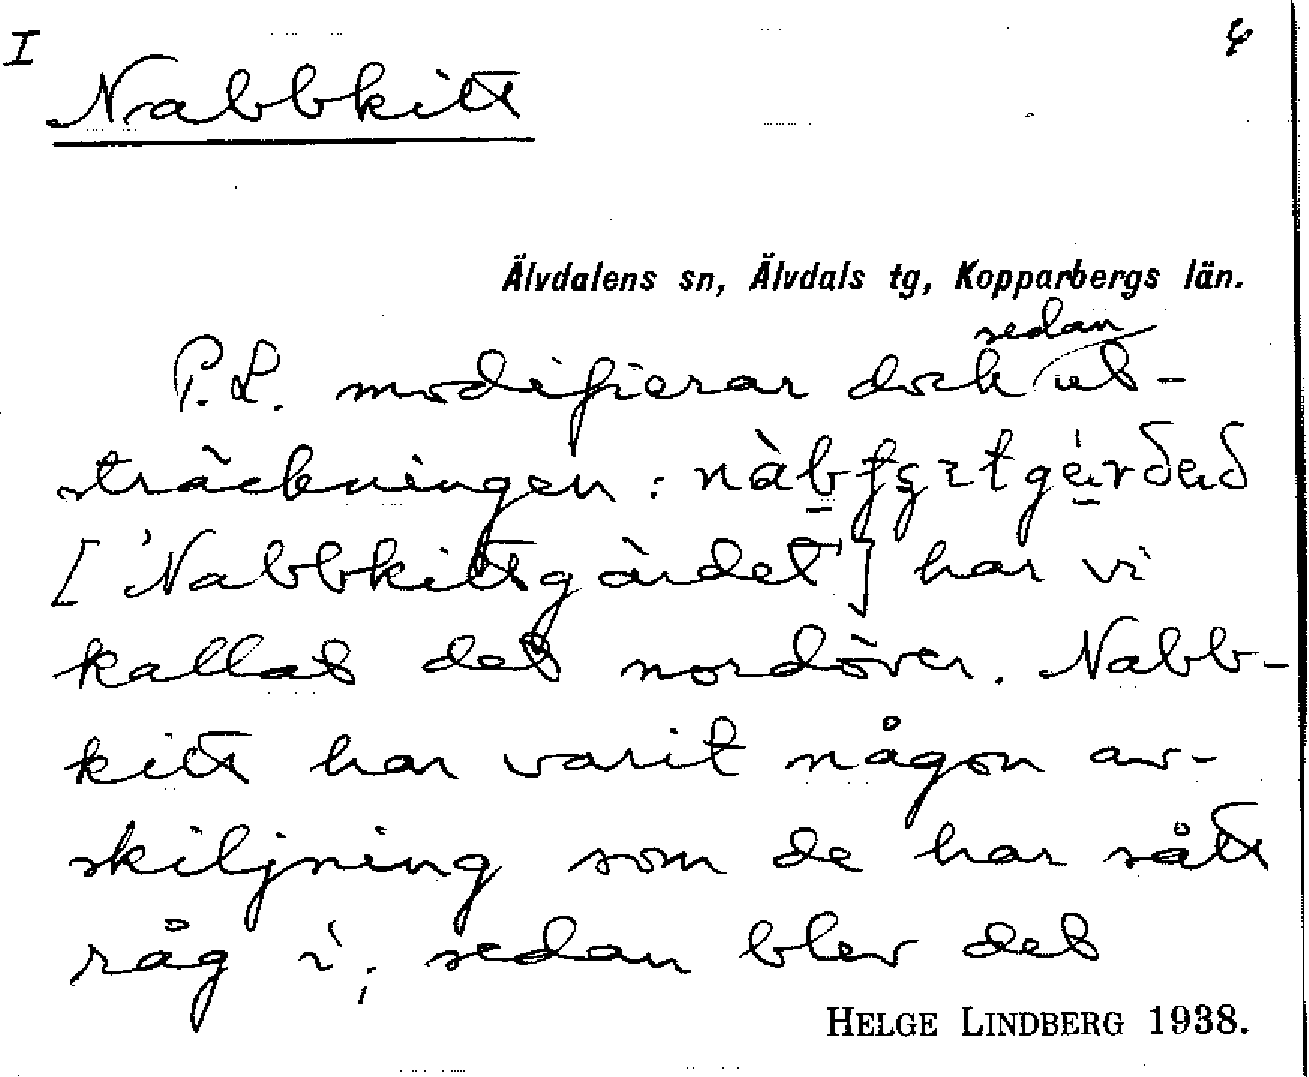 I
Nabbkitt
Älvdalens sn, Älvdals tg, Kopparbergs län.
sedan
P.L. modifierar dock ut-
sträckningen:
['Nabbkittgärdet'] har vi
kallat det nordöver. Nabb-
kitt har varit någon av-
skiljning som de har sått
råg i; sedan blev det
HELGE LINDBERG 1938.